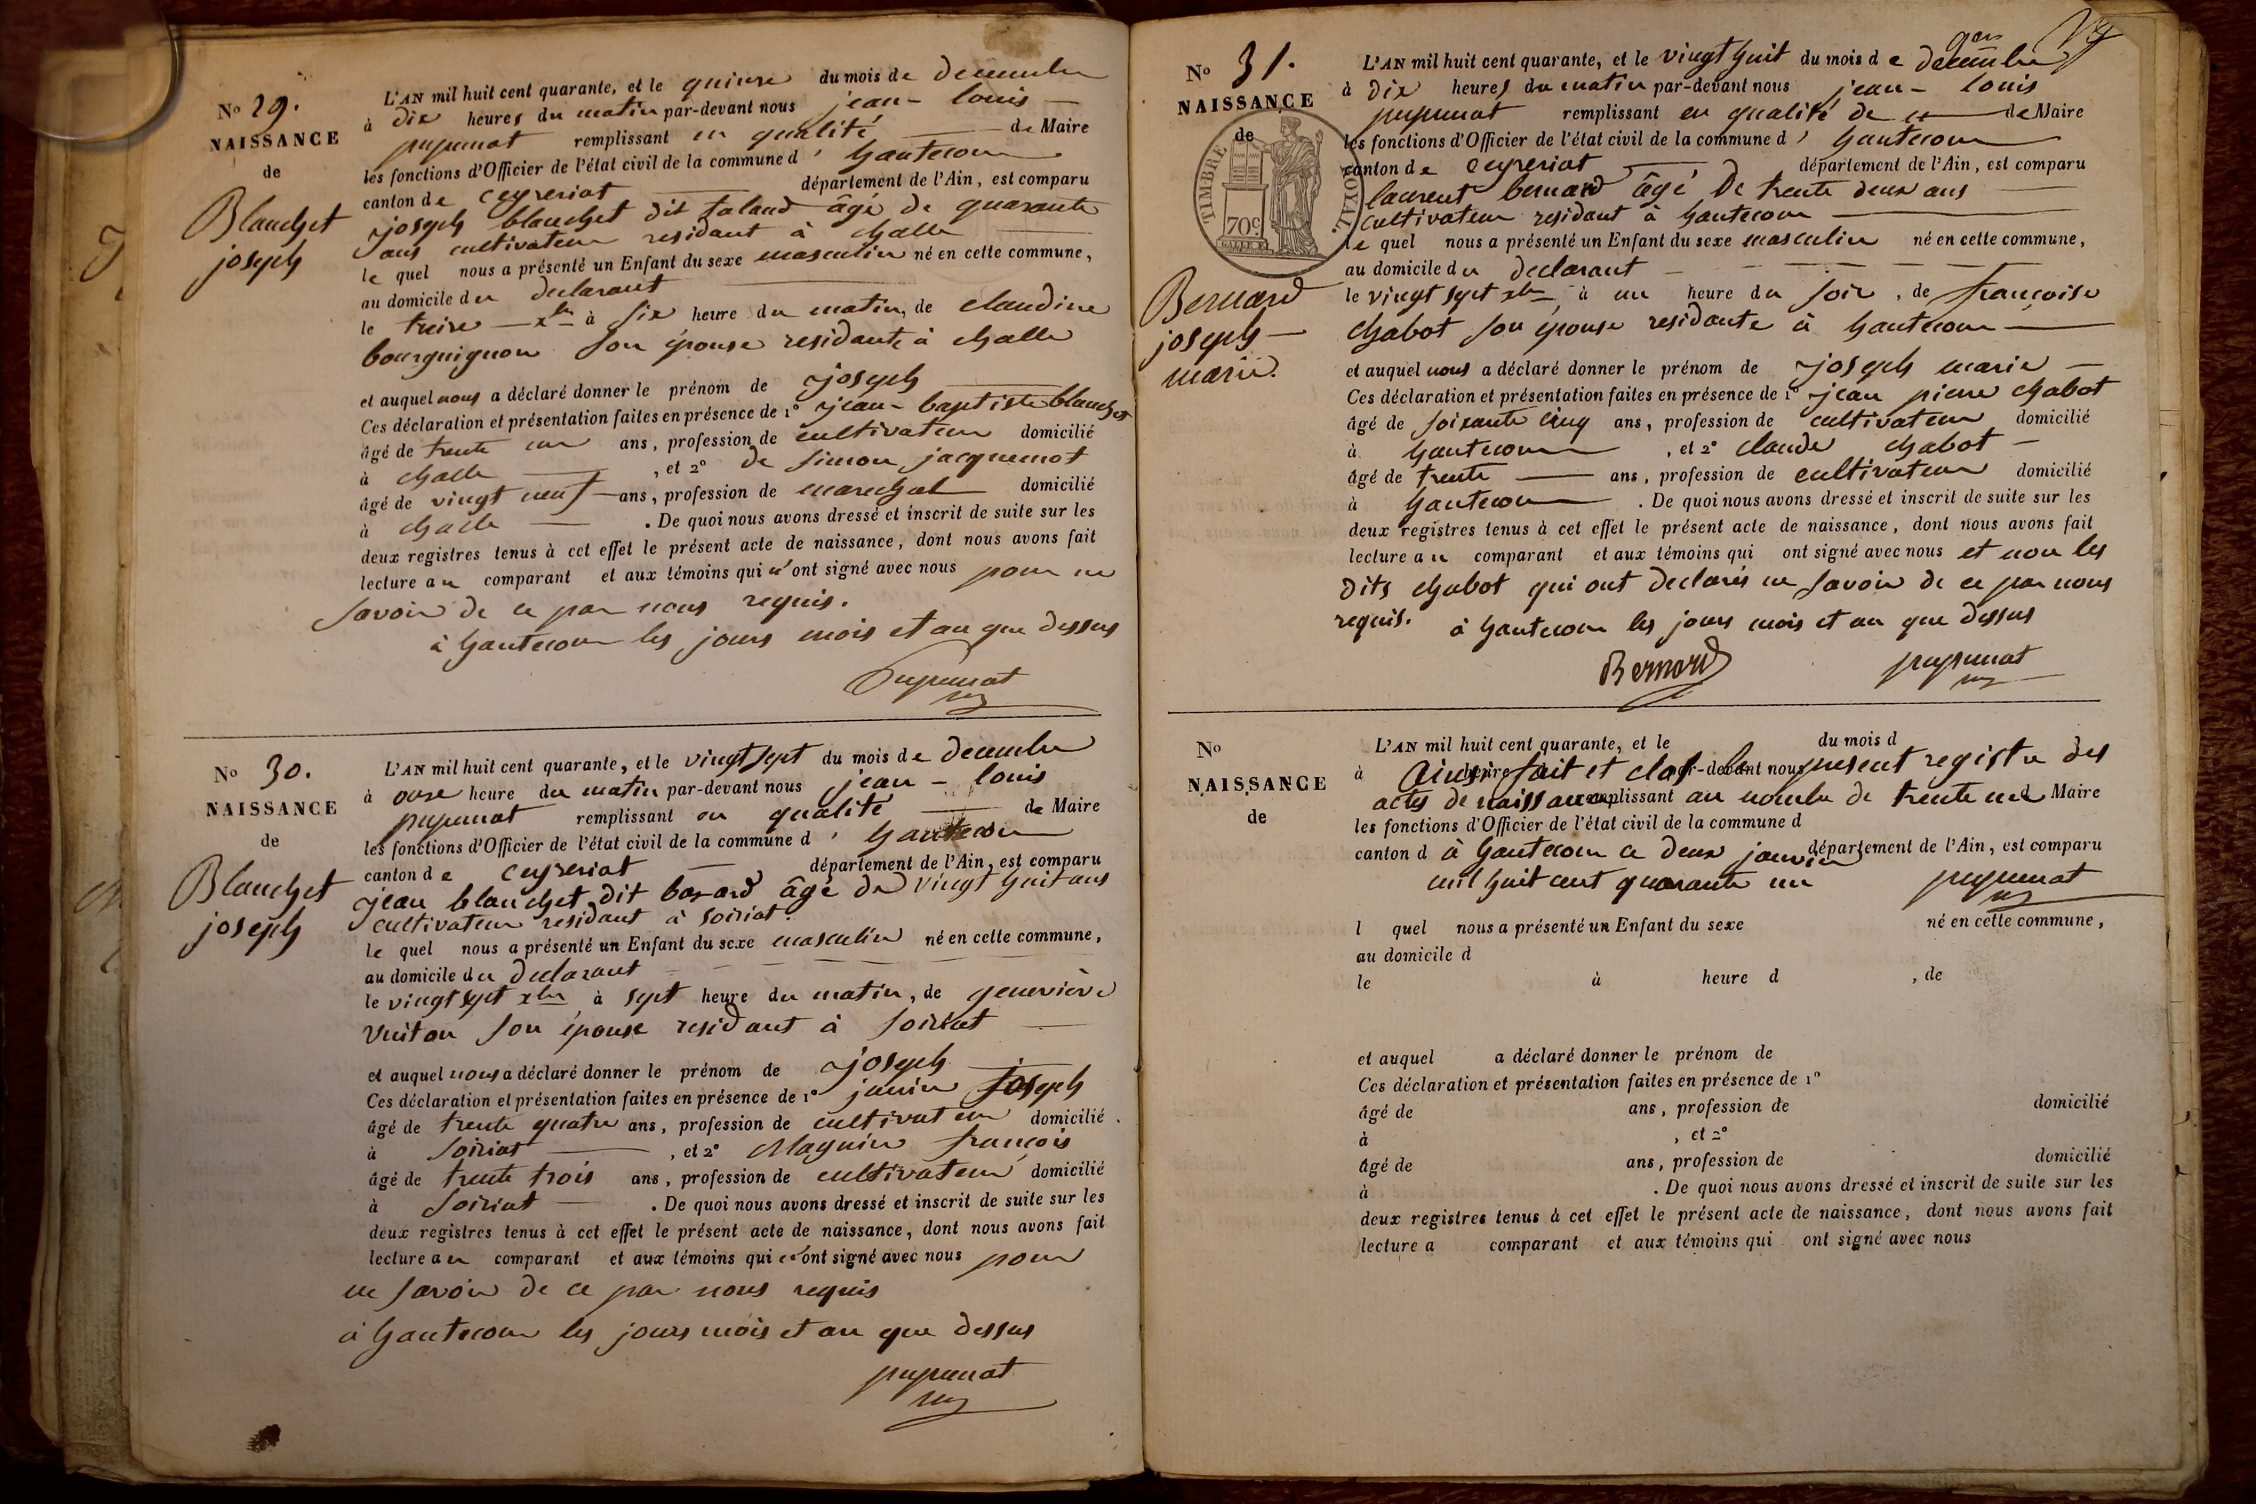 N.° 29.
NAISSANCE
de
Blanchet
joseph
L'AN mil huit cent quarante, et le quinze du mois de decembre
à dix heures du matin par-devant nous jean - louis
pupunat remplissant en qualité de Maire
les fonctions d'Officier de l'état civil de la commune d' hautecour
canton de ceyzeriat département de l'Ain, est comparu
joseph blanchet dit taland âgé de quarante
ans cultivateur residant à challe
le quel nous a présenté un Enfant du sexe masculin né en cette commune,
au domicile du declarant
le treize xbre à six heure du matin, de claudine
bourguignon son épouse residante à challe
et auquel nous a déclaré donner le prénom de joseph
Ces déclaration et présentation faites en présence de 1° jean - baptiste blanchet
âgé de trente un ans, profession de cultivateur domicilié
à challe , et 2° de simon jacquemot
âgé de vingt neuf ans, profession de marechal domicilié
à challe . De quoi nous avons dressé et inscrit de suite sur les
deux registres tenus à cet effet le présent acte de naissance, dont nous avons fait
lecture au comparant et aux témoins qui n'ont signé avec nous pour ne
savoir de ce par nous requis.
à hautecour les jours mois et an que dessus
pupunat
N.° 30.
NAISSANCE
de
Blanchet
joseph
L'AN mil huit cent quarante, et le vingt sept du mois de decembre
à onze heure du matin par-devant nous jean - louis
pupunat remplissant en qualité de Maire
les fonctions d'Officier de l'état civil de la commune d' hautecour
canton de ceyzeriat département de l'Ain, est comparu
jean blanchet dit bozard âgé de vingt huit ans
cultivateur residant à soiriat.
le quel nous a présenté un Enfant du sexe masculin né en cette commune,
au domicile du declarant
le vingt sept xbre à sept heure du matin, de genevieve
vuiton son épouse residant à soiriat
et auquel nous a déclaré donner le prénom de joseph
Ces déclaration et présentation faites en présence de 1° janin joseph
âgé de trente quatre ans, profession de cultivateur domicilié
à soiriat , et 2° Magnin françois
âgé de trente trois ans, profession de cultivateur domicilié
à soiriat . De quoi nous avons dressé et inscrit de suite sur les
deux registres tenus à cet effet le présent acte de naissance, dont nous avons fait
lecture au comparant et aux témoins qui n'ont signé avec nous pour
ne savoir de ce par nous requis
à hautecour les jours mois et an que dessus
pupunat
N.° 31.
NAISSANCE
de
TIMBRE ROYAL.
70c
Bernard
joseph
marie.
L'AN mil huit cent quarante, et le vingt huit du mois de decembre
à dix heures du matin par-devant nous jean - louis
pupunat remplissant en qualité de de Maire
les fonctions d'Officier de l'état civil de la commune d' hautecour
canton de ceyzeriat département de l'Ain, est comparu
laurent bernard âgé de trente deux ans
cultivateur residant à hautecour
le quel nous a présenté un Enfant du sexe masculin né en cette commune,
au domicile du declarant
le vingt sept xbre à un heure du soir, de françoise
chabot son épouse residante à hautecour
et auquel nous a déclaré donner le prénom de joseph marie
Ces déclaration et présentation faites en présence de 1° jean pierre chabot
âgé de soixante cinq ans, profession de cultivateur domicilié
à hautecour , et 2° claude chabot
âgé de trente ans, profession de cultivateur domicilié
à hautecour . De quoi nous avons dressé et inscrit de suite sur les
deux registres tenus à cet effet le présent acte de naissance, dont nous avons fait
lecture au comparant et aux témoins qui ont signé avec nous et non les
dits chabot qui ont declarés ne savoir de ce par nous
requis. à hautecour les jours mois et an que dessus
Bernard pupunat
N.°
NAISSANCE
de
L'AN mil huit cent quarante, et le du mois d
à heure par-devant nous
Ainsi fait et clos le present registre des
remplissant Maire
actes de naissances au nombre de trente un
les fonctions d'Officier de l'état civil de la commune d
canton d département de l'Ain, est comparu
à hautecour ce deux janvier
mil huit cent quarante un pupunat
l quel nous a présenté un Enfant du sexe né en cette commune,
au domicile d
le à heure d , de
et auquel a déclaré donner le prénom de
Ces déclaration et présentation faites en présence de 1°
âgé de ans, profession de domicilié
à , et 2°
âgé de ans, profession de domicilié
à . De quoi nous avons dressé et inscrit de suite sur les
deux registres tenus à cet effet le présent acte de naissance, dont nous avons fait
lecture a comparant et aux témoins qui ont signé avec nous